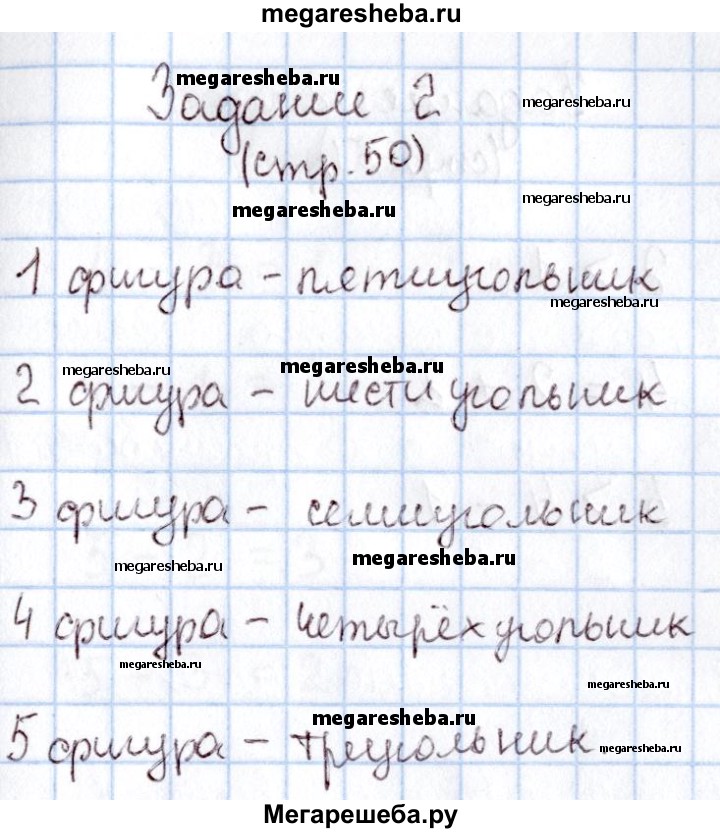 megaresheba.ru
megaresheba.ru
Задание 2
megaresheba.ru
(стр. 50)
megaresheba.ru
megaresheba.ru
1 фигура – пятиугольник
megaresheba.ru
megaresheba.ru
megaresheba.ru
2 фигура – шестиугольник
megaresheba.ru
3 фигура – семиугольник
megaresheba.ru
megaresheba.ru
4 фигура – четырёхугольник
megaresheba.ru
megaresheba.ru
megaresheba.ru
5 фигура – треугольник.
megaresheba.ru
Мегарешеба.ру